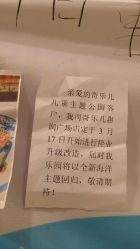 亲爱的奇乐儿
儿童主题公园客
户，我司奇乐儿
广场店定于3月
17日开始进行停业
升级改造，届时我
乐园将以全新海洋
主题回归，敬请期
待！